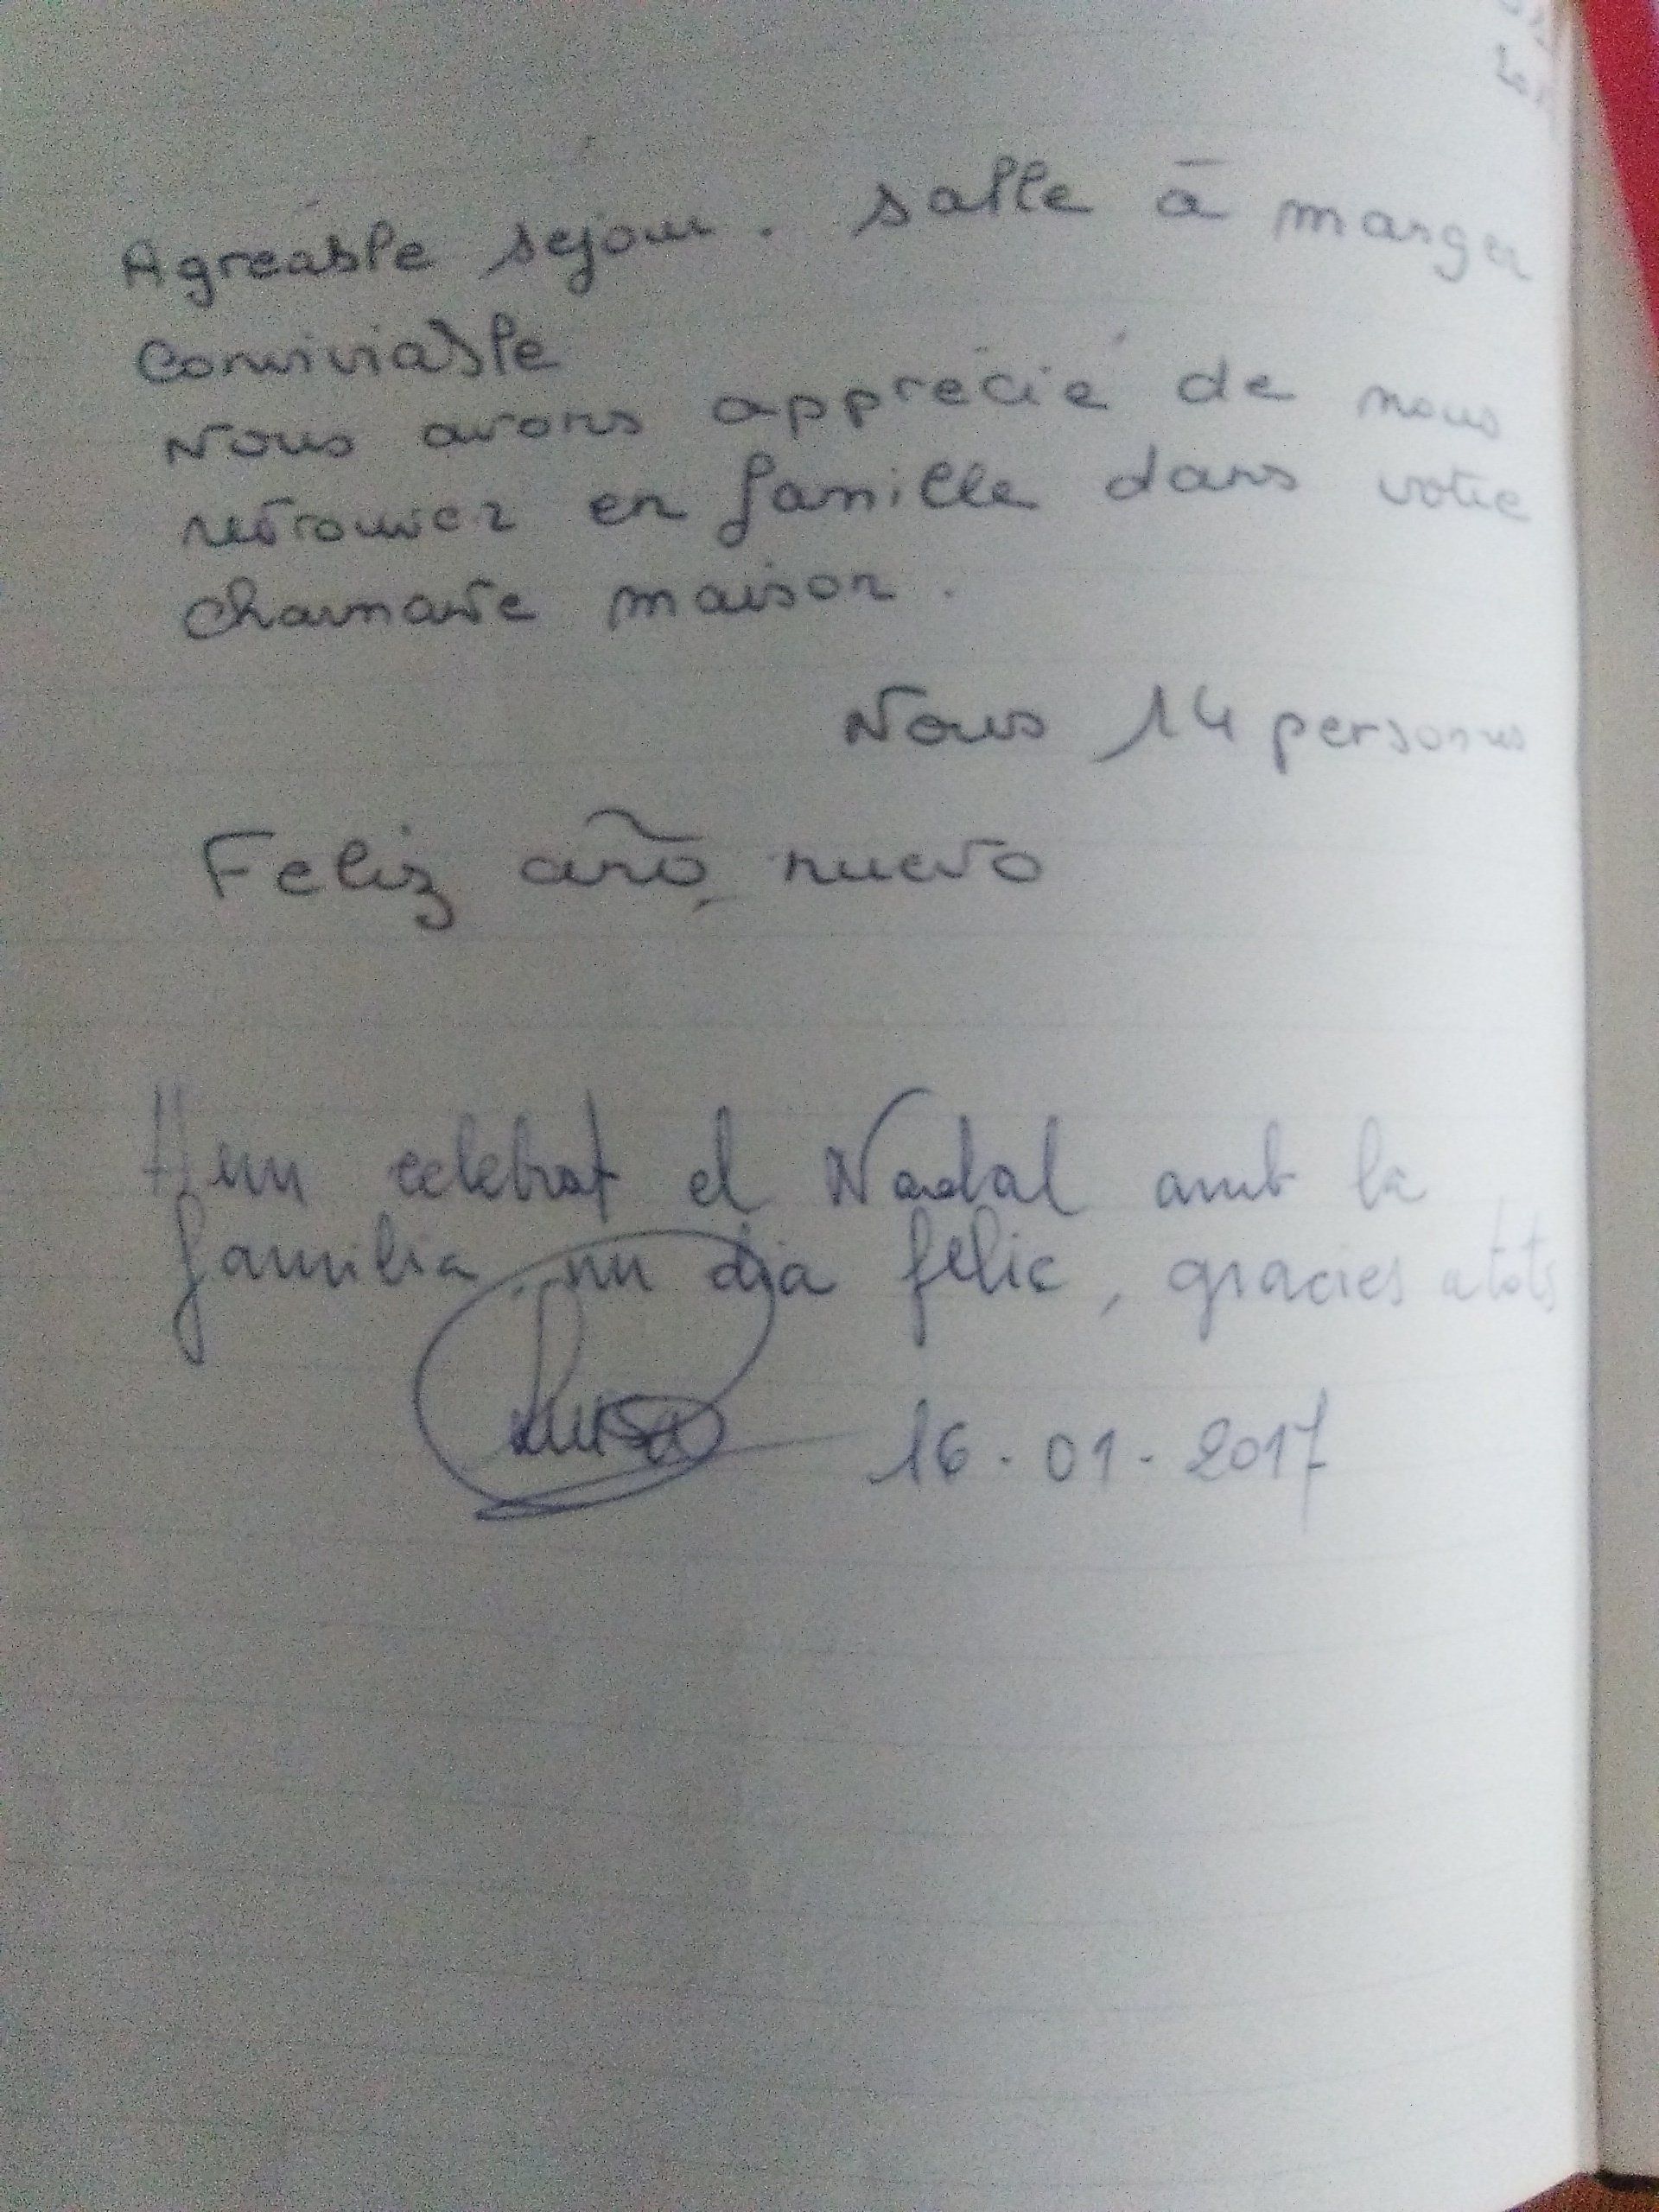 Agréable séjour. salle à manger
conviviable
Nous avons apprécié de nous
retrouver en famille dans votre
charmante maison.
Nous 14 personnes
Feliz año nuevo
Hem celebrat el Nadal amb la
familia, un dia feliç, gracies a tots
Luisa 16-01-2017